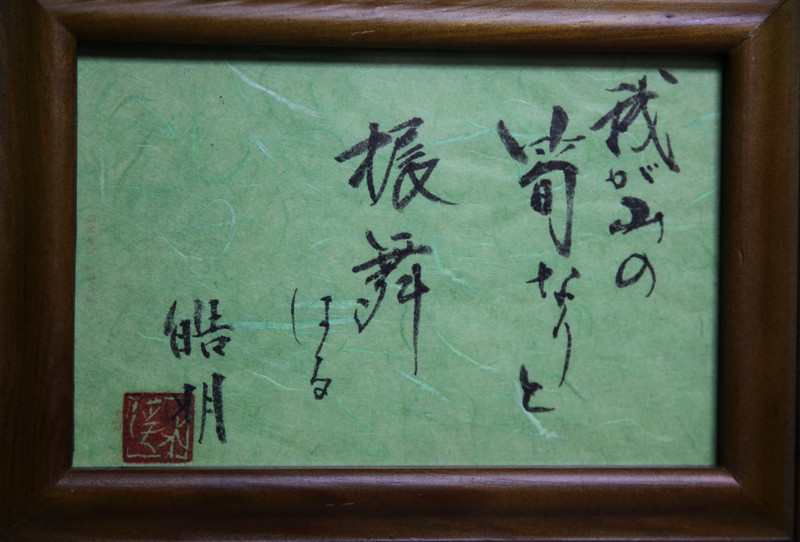 我が山の
筍なりと
振舞
はる
皓明